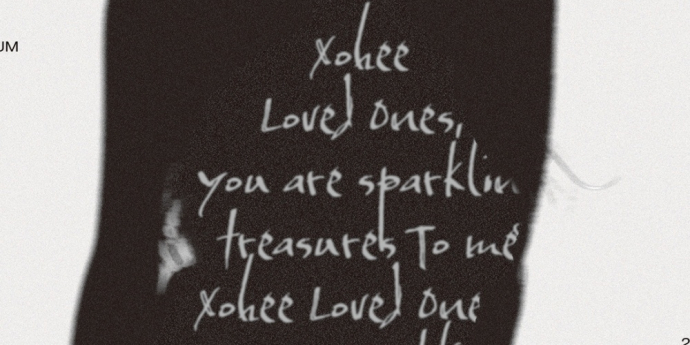 UM
Xohee
Loved Ones,
you are sparklin
treasures To me
Xohee Loved One